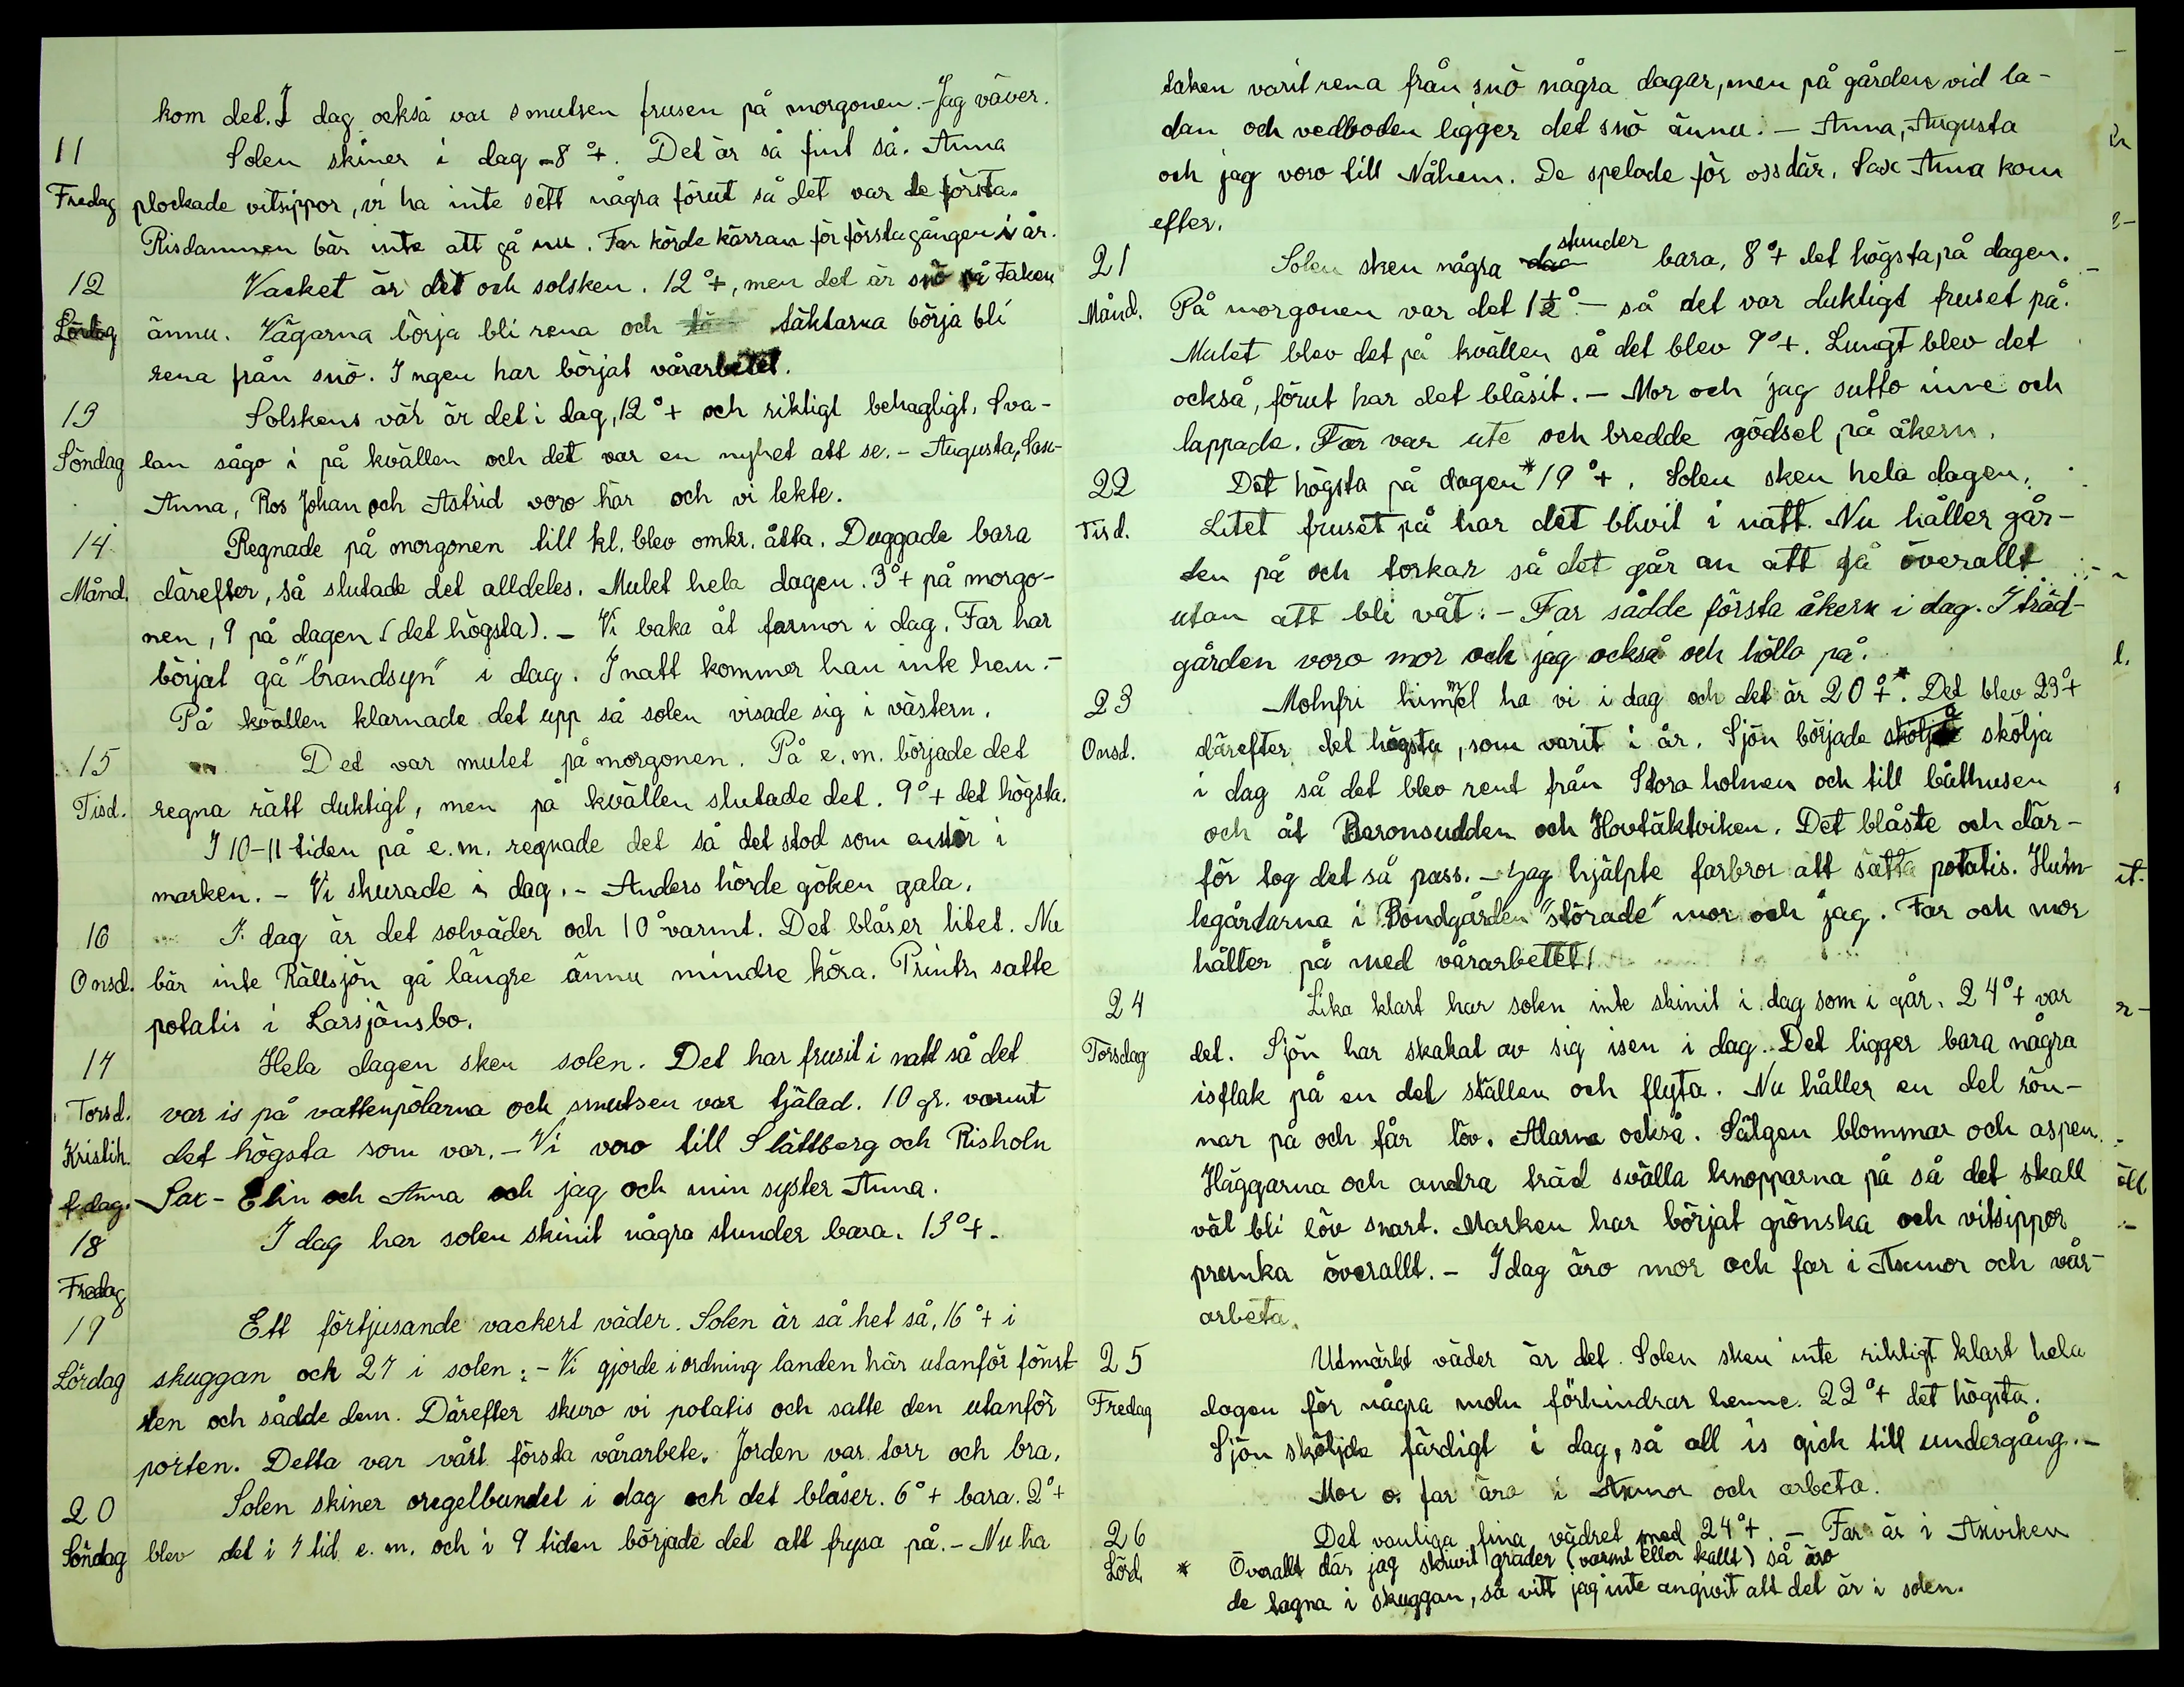 kom det. I dag också var smutsen frusen på morgonen. - Jag väver.
11 Solen skiner i dag - 8°+. Det är så fint så. Anna
Fredag plockade vitsippor, vi ha inte sett några förut så det var de första.
Risdammen bär inte att gå nu. Far körde kärran för första gången i år.
12 Vacket är det och solsken. 12°+, men det är snö på taken
Lördag ännu. Vägarna börja bli rena och täktarna börja bli
rena från snö. Ingen har börjat vårarbetet.
13 Solskens vår är det i dag, 12°+ och riktigt behagligt. Sva-
Söndag lan sågo i på kvällen och det var en nyhet att se. - Augusta, Sax-
Anna, Ros Johan och Astrid voro här och vi lekte.
14 Regnade på morgonen till kl. blev omkr. åtta. Duggade bara
Månd. därefter, så slutade det alldeles. Mulet hela dagen. 3°+ på morgo-
nen, 9 på dagen (det högsta). - Vi baka åt farmor i dag. Far har
börjat gå "brandsyn" i dag. I natt kommer han inte hem. -
På kvällen klarnade det upp så solen visade sig i västern.
15 Det var mulet på morgonen. På e.m. började det
Tisd. regna rätt duktigt, men på kvällen slutade det. 9°+ det högsta.
I 10-11 tiden på e.m. regnade det så det stod som en stör i
marken. - Vi skurade i dag. - Anders hörde göken gala.
16 I dag är det solväder och 10° varmt. Det blåser litet. Nu
Onsd. bär inte Rällsjön gå längre ännu mindre köra. Printz satte
potatis i Larsjönsbo.
17 Hela dagen sken solen. Det har frusit i natt så det
Torsd. var is på vattenpölarna och smutsen var tjälad. 10 gr. varmt
Kristih. det högsta som var. - Vi voro till Slättberg och Risholn
f. dag. Sax-Elin och Anna och jag och min syster Anna.
18 I dag har solen skinit några stunder bara. 13°+.
Fredag
19 Ett förtjusande vackert väder. Solen är så het så, 16°+ i
Lördag skuggan och 27 i solen. - Vi gjorde i ordning landen här utanför fönst-
ren och sådde dem. Därefter skuro vi potatis och satte den utanför
porten. Detta var vårt första vårarbete. Jorden var torr och bra.
20 Solen skiner oregelbundet i dag och det blåser. 6°+ bara. 2°+
Söndag blev det i 7 tid e.m. och i 9 tiden började det att frysa på. - Nu ha
taken varit rena från snö några dagar, men på gården vid la-
dan och vedboden ligger det snö ännu. - Anna, Augusta
och jag voro till Nåhem. De spelade för oss där. Sax Anna kom
efter.
21 Solen sken några stunder bara, 8°+ det högsta på dagen.
Månd. På morgonen var det 1½° - så det var duktigt fruset på.
Mulet blev det på kvällen så det blev 9°+. Lungt blev det
också, förut har det blåsit. - Mor och jag sutto inne och
lappade. Far var ute och bredde gödsel på åkern.
22 Det högsta på dagen* 19°+. Solen sken hela dagen.
Tisd. Litet fruset på har det blivit i natt. Nu håller går-
den på och torkar så det går an att gå överallt
utan att bli våt. - Far sådde första åkern i dag. I träd-
gården voro mor och jag också och höllo på.
23 Molnfri himmel ha vi i dag och det är 20°+*. Det blev 23°+
Onsd. därefter det högsta, som varit i år. Sjön började skölja
i dag så det blev rent från Stora holmen och till båthusen
och åt Baronsudden och Hovtäktviken. Det blåste och där-
för tog det så pass. - Jag hjälpte farbror att sätta potatis. Hum-
legårdarna i Bondgården "störade" mor och jag. Far och mor
håller på med vårarbetet!
24 Lika klart har solen inte skinit i dag som i går. 24°+ var
Torsdag det. Sjön har skakat av sig isen i dag. Det ligger bara några
isflak på en del ställen och flyta. Nu håller en del rön-
nar på och får löv. Alarna också. Sälgen blommar och aspen.
Häggarna och andra träd svälla knopparna på så det skall
väl bli löv snart. Marken har börjat grönska och vitsippor
prunka överallt. - I dag äro mor och far i Axmor och vår-
arbeta.
25 Utmärkt väder är det. Solen sken inte riktigt klart hela
Fredag dagen för några moln förhindrar henne. 22°+ det högsta.
Sjön sköljde färdigt i dag, så all is gick till undergång. -
Mor o. far äro i Axmor och arbeta.
26 Det vanliga fina vädret med 24°+. - Far är i Axviken
Lörd. * Överallt där jag skrivit grader (varmt eller kallt) så äro
de tagna i skuggan, så vitt jag inte angivit att det är i solen.